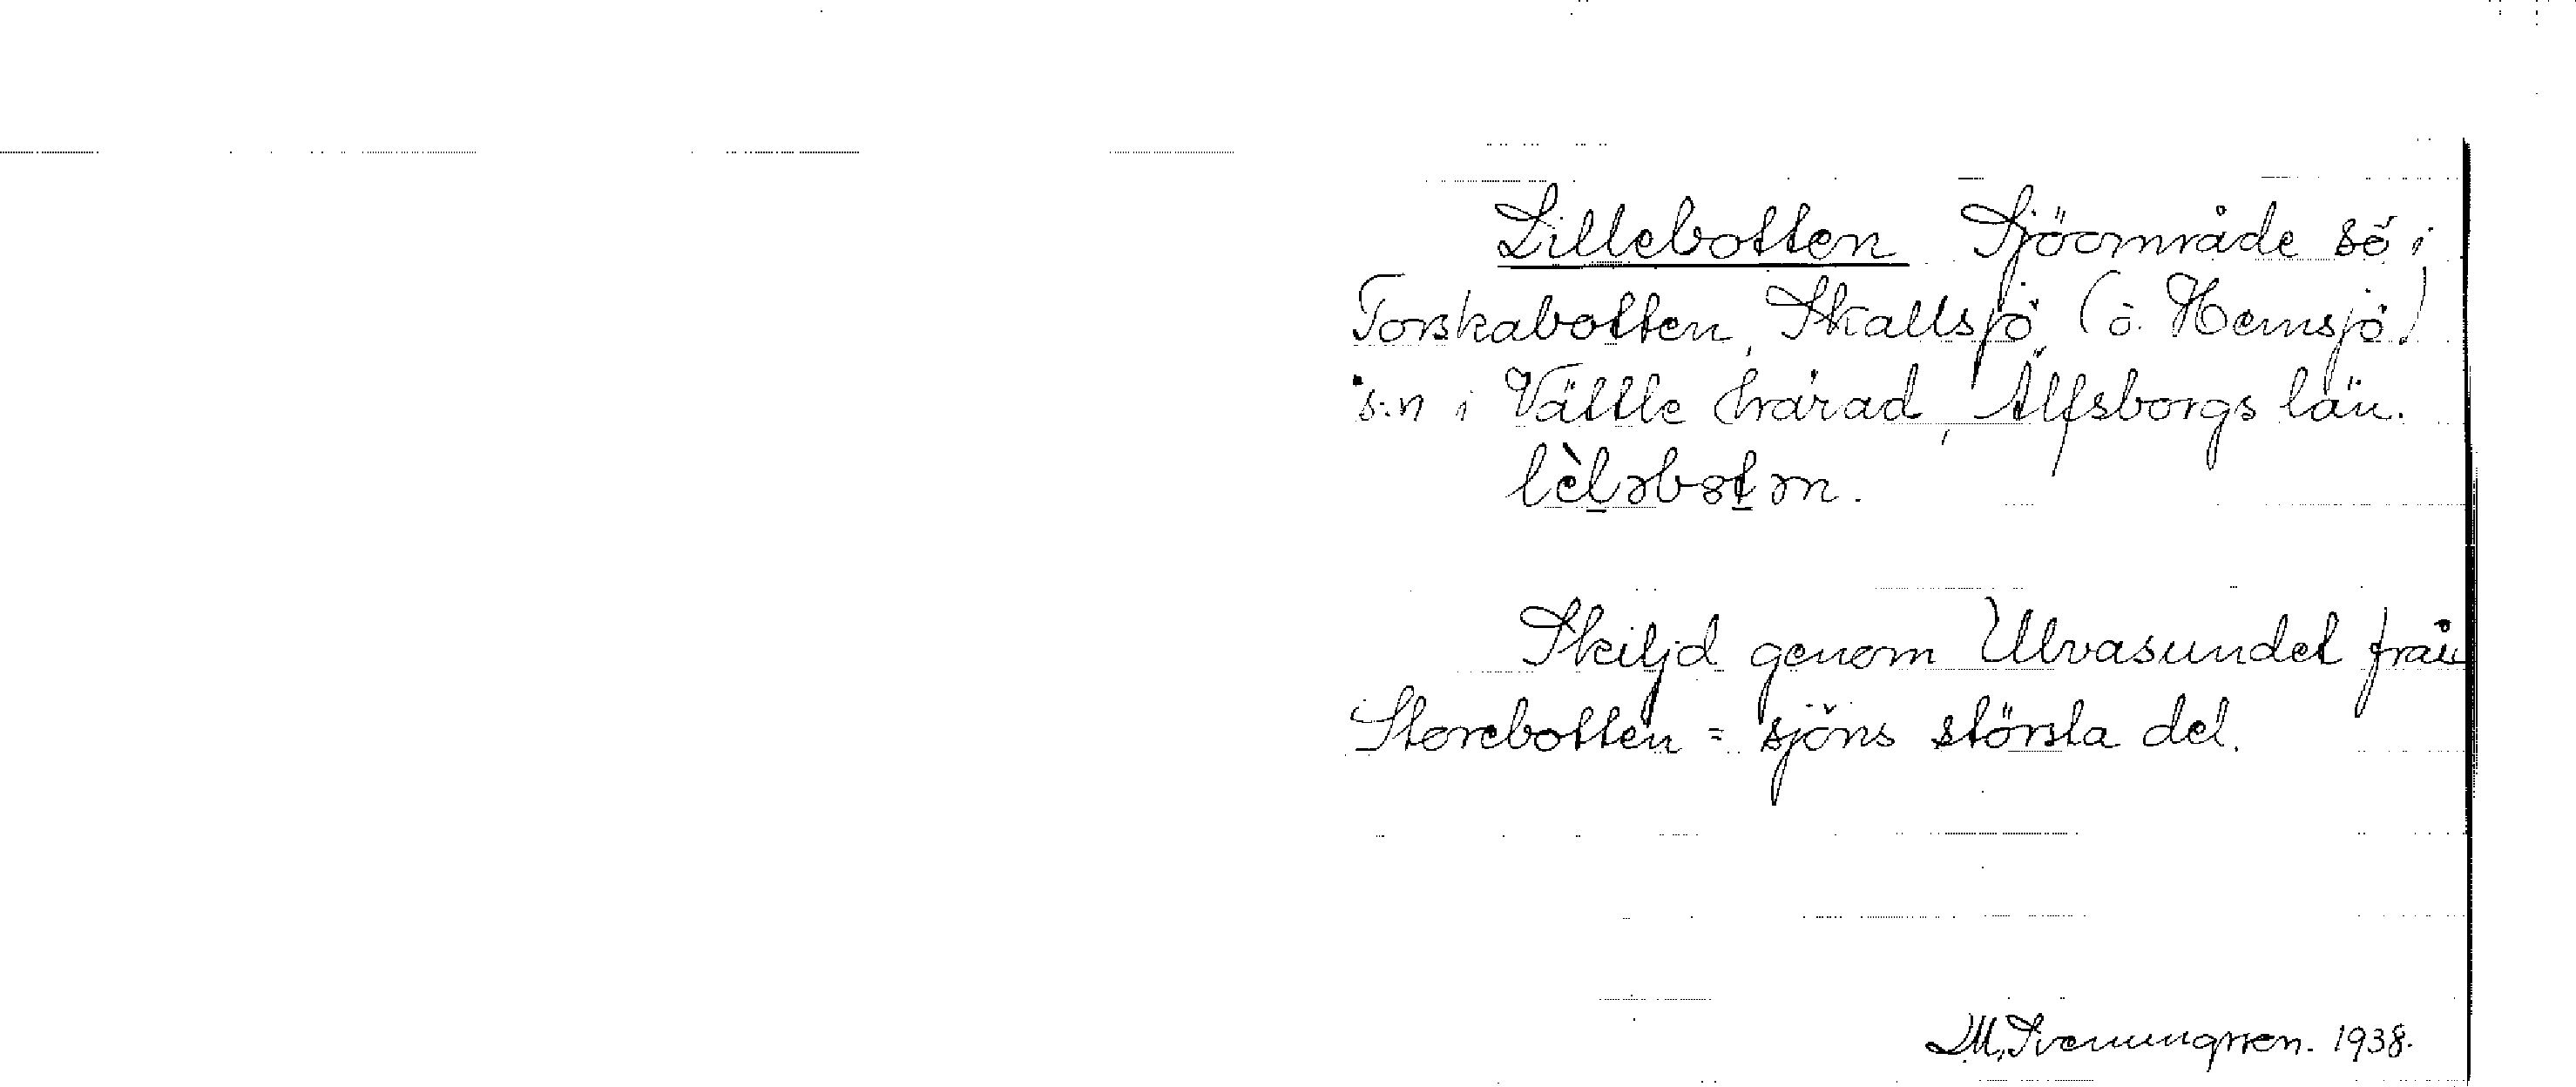 Lillebotten Sjöområde sö i
Torskabotten, Skallsjö (o. Hemsjö)
s:n i Vättle härad, Älfsborgs län.
lèləbotən.
Skiljd genom Ulvasundet från
Storebotten = sjöns största del.
1938.